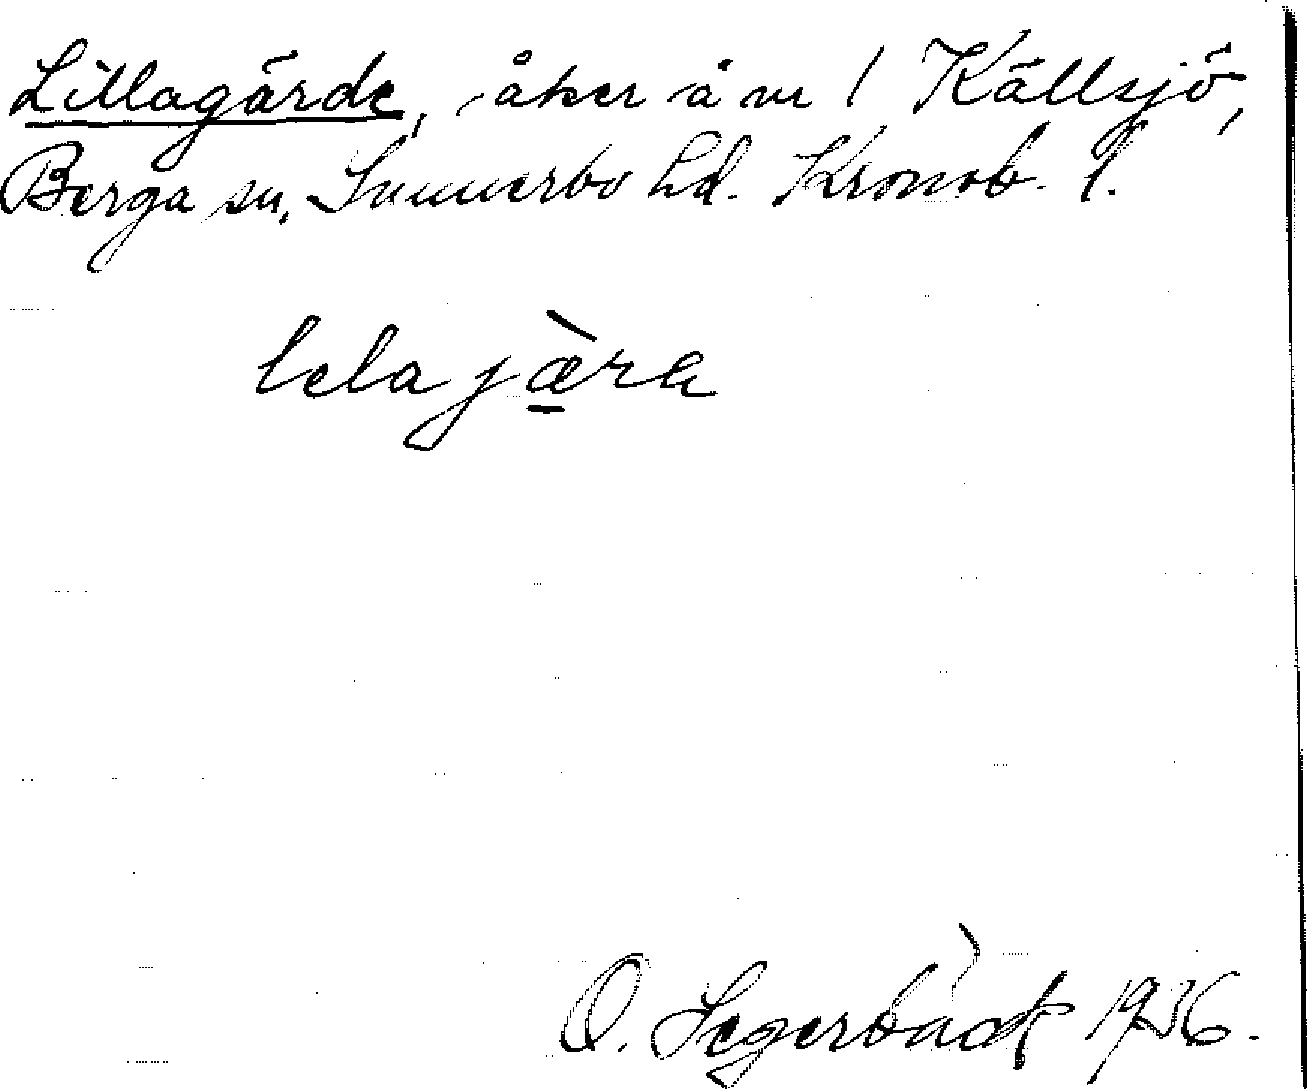 Lillagärde, åker å nr 1 Källsjö,
Berga sn, Sunnerbo hd. Kronob. l.
lelajæ̠̀ra
O. Segerbäck 1936.